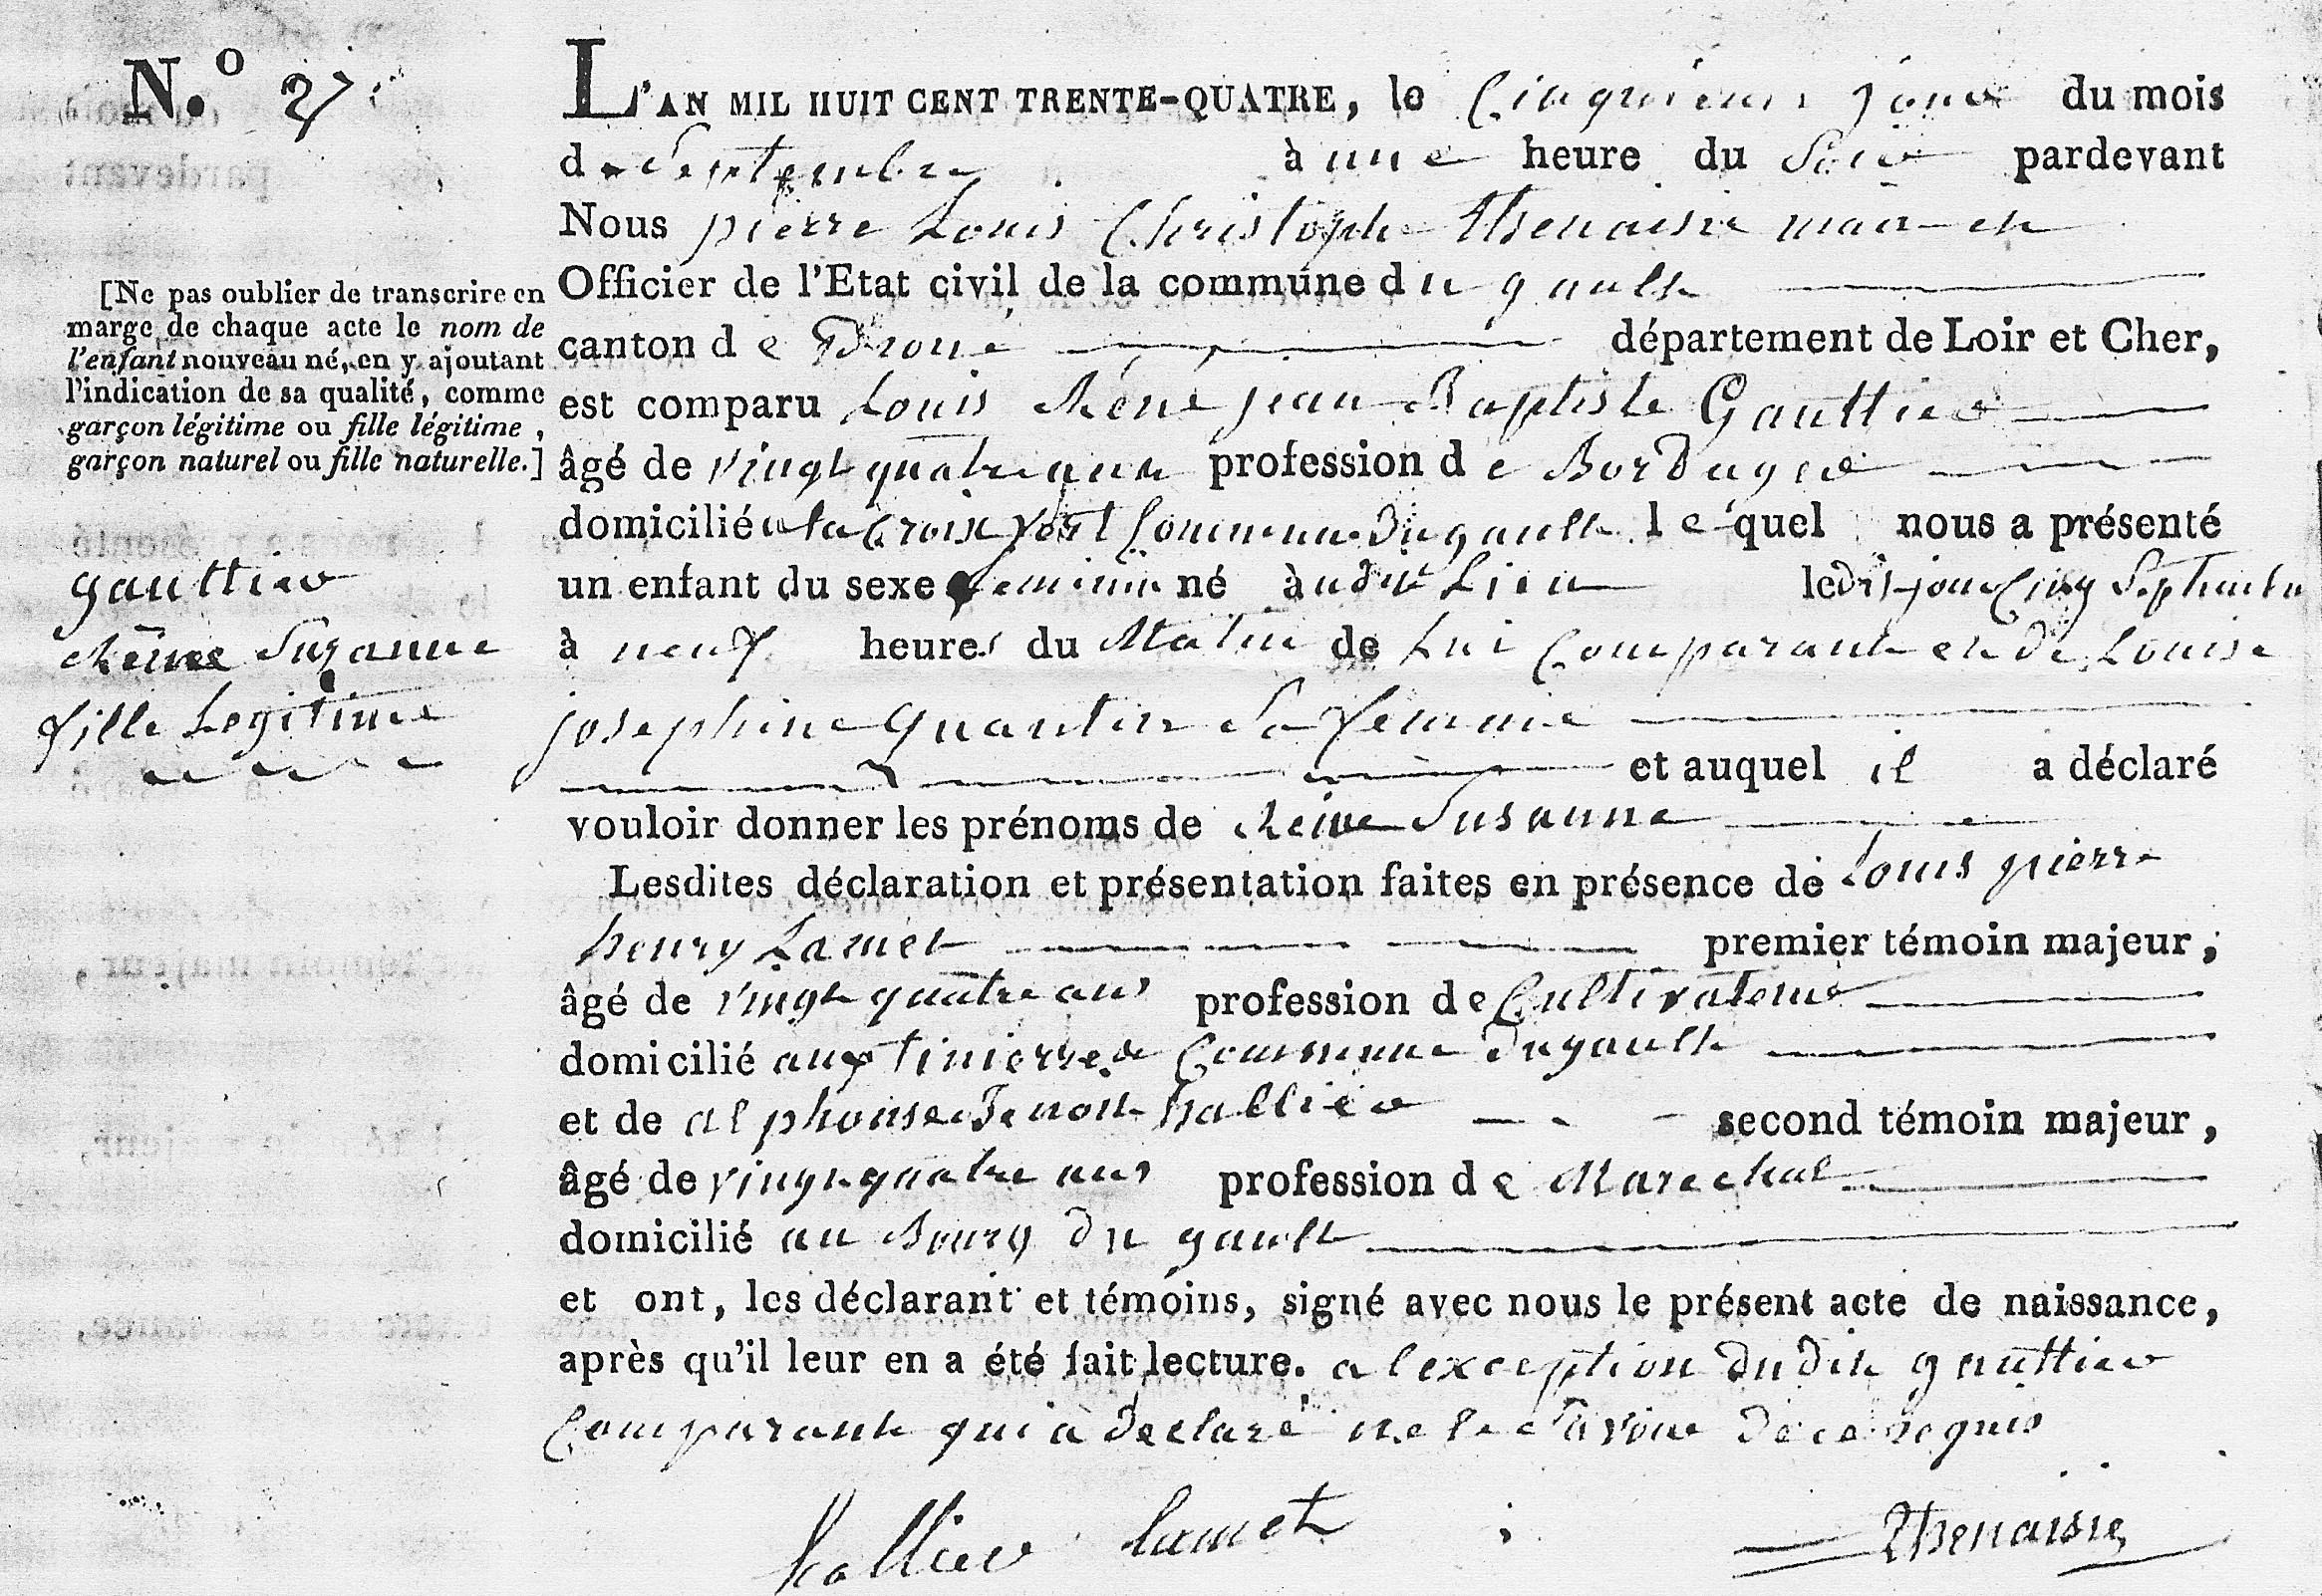 N.º 27
L'AN MIL HUIT CENT TRENTE-QUATRE, le Cinquieme jour du mois
de Septembre à une heure du Soir pardevant
Nous pierre Louis Christophe Thenaisie maire et
Officier de l'Etat civil de la commune du gault
canton de Droué département de Loir et Cher,
est comparu Louis Réné jean Baptiste Gauttier
âgé de vingt quatre ans profession de Bordager
domicilié a la Croix vert Commune du gault lequel nous a présenté
un enfant du sexe feminin né audit Lieu ledit jour Cinq Septembre
à neuf heures du Matin de Lui Comparant et de Louise
josephine quantin Sa femme
et auquel il a déclaré
vouloir donner les prénoms de Reine Susanne
Lesdites déclaration et présentation faites en présence de Louis pierre
henry Lamet premier témoin majeur,
âgé de vingt quatre ans profession de Cultivateur
domicilié aux Commune du gault
et de alphonse hallier second témoin majeur,
âgé de vingt quatre ans profession de Marechal
domicilié au Bourg du gault
et ont, les déclarant et témoins, signé avec nous le présent acte de naissance,
après qu'il leur en a été fait lecture. a lexception dudit gauttier
Comparant qui à declaré ne le Savoir de ce requis
hallier lamet Thenaisie
[Ne pas oublier de transcrire en
marge de chaque acte le nom de
l'enfant nouveau né, en y ajoutant
l'indication de sa qualité, comme
garçon légitime ou fille légitime,
garçon naturel ou fille naturelle.]
gauttier
Reine Suzanne
fille Legitime